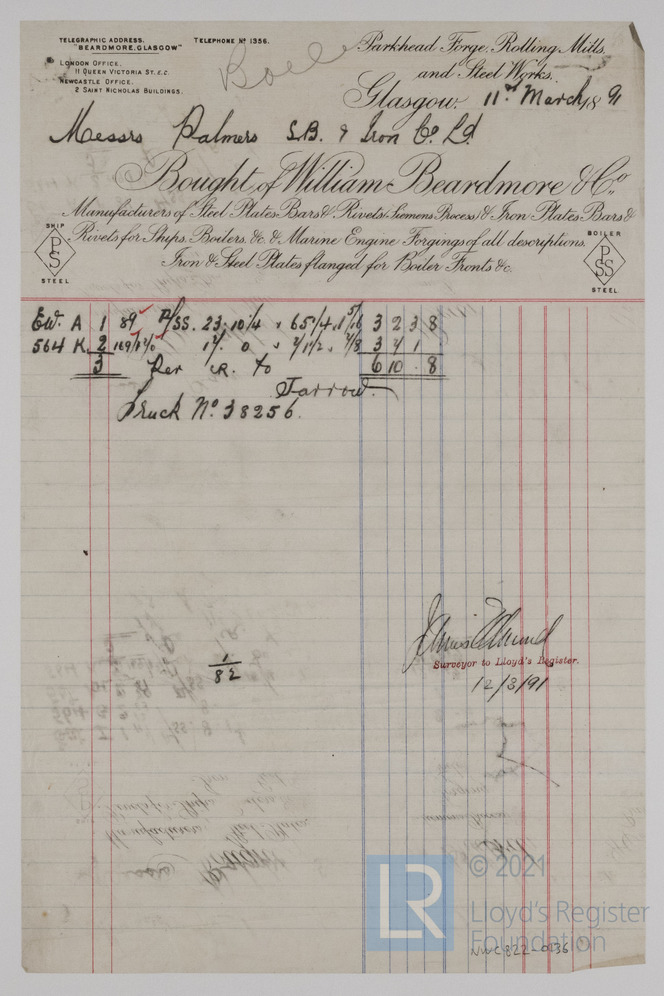 TELEGRAPHIC ADDRESS.
"BEARDMORE, GLASGOW"
TELEPHONE No 1356.
LONDON OFFICE.
11 QUEEN VICTORIA ST. E.C.
NEWCASTLE OFFICE.
2 SAINT NICHOLAS BUILDINGS.
Parkhead Forge, Rolling Mills,
and Steel Works.
Glasgow, 11th March 1891
Messrs Palmers S.B. & Iron Co Ld
Bought of William Beardmore & Co.
Manufacturers of Steel Plates Bars & Rivets (Siemens Process) & Iron Plates Bars &
Rivets for Ships, Boilers, &c. & Marine Engine Forgings of all descriptions.
Iron & Steel Plates flanged for Boiler Fronts &c.
SHIP
PS
STEEL
BOILER
PSS
STEEL
EW. A 1 89 P/SS. 23. 10 1/4 3 2 3 8
564 K 2 3 4 1
3 Per to 6 10 . 8
Jarrow.
Truck No. 38256.
1/82
Surveyor to Lloyd's Register.
12/3/91
LR
© 2021
Lloyd's Register
Foundation
NWC822-0136